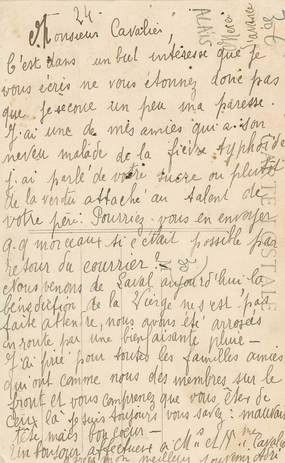 24.
Monsieur Cavalier,
C'est dans un but intéressé que je
vous écris ne vous étonnez donc pas
que je secoue un peu ma paresse.
J'ai une de mes amies qui a son
neveu malade de la fièvre typhoïde
j'ai parlé de votre sucre ou plutôt
de la vertu attaché au talent de
votre père. Pourriez-vous en envoyer
q.q morceaux si c'était possible par
retour du courrier?
Nous venons de Laval aujourd'hui la
bénédiction de la Vierge ne s'est pas
faite attendre, nous avons été arrosés
en route par une bienfaisante pluie —
J'ai prié pour toutes les familles amies
qui ont comme nous des membres sur le
front et vous comprenez que vous êtes de
ceux là je suis toujours vous savez: mauvaise
tête mais bon cœur —
Un bonjour affectueux à Mr et Mme Cavalier
meilleur souvenir
Merci
d'avance
ALAIS
CARTE POSTALE